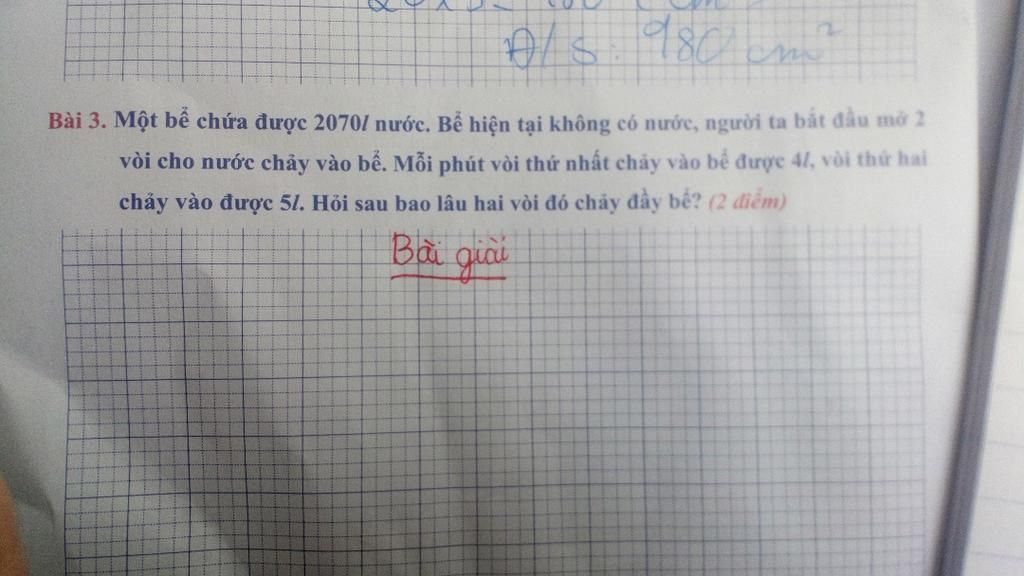 Đ/S: 980 cm²
Bài 3. Một bể chứa được 2070l nước. Bể hiện tại không có nước, người ta bắt đầu mở 2
vòi cho nước chảy vào bể. Mỗi phút vòi thứ nhất chảy vào bể được 4l, vòi thứ hai
chảy vào được 5l. Hỏi sau bao lâu hai vòi đó chảy đầy bể? (2 điểm)
Bài giải